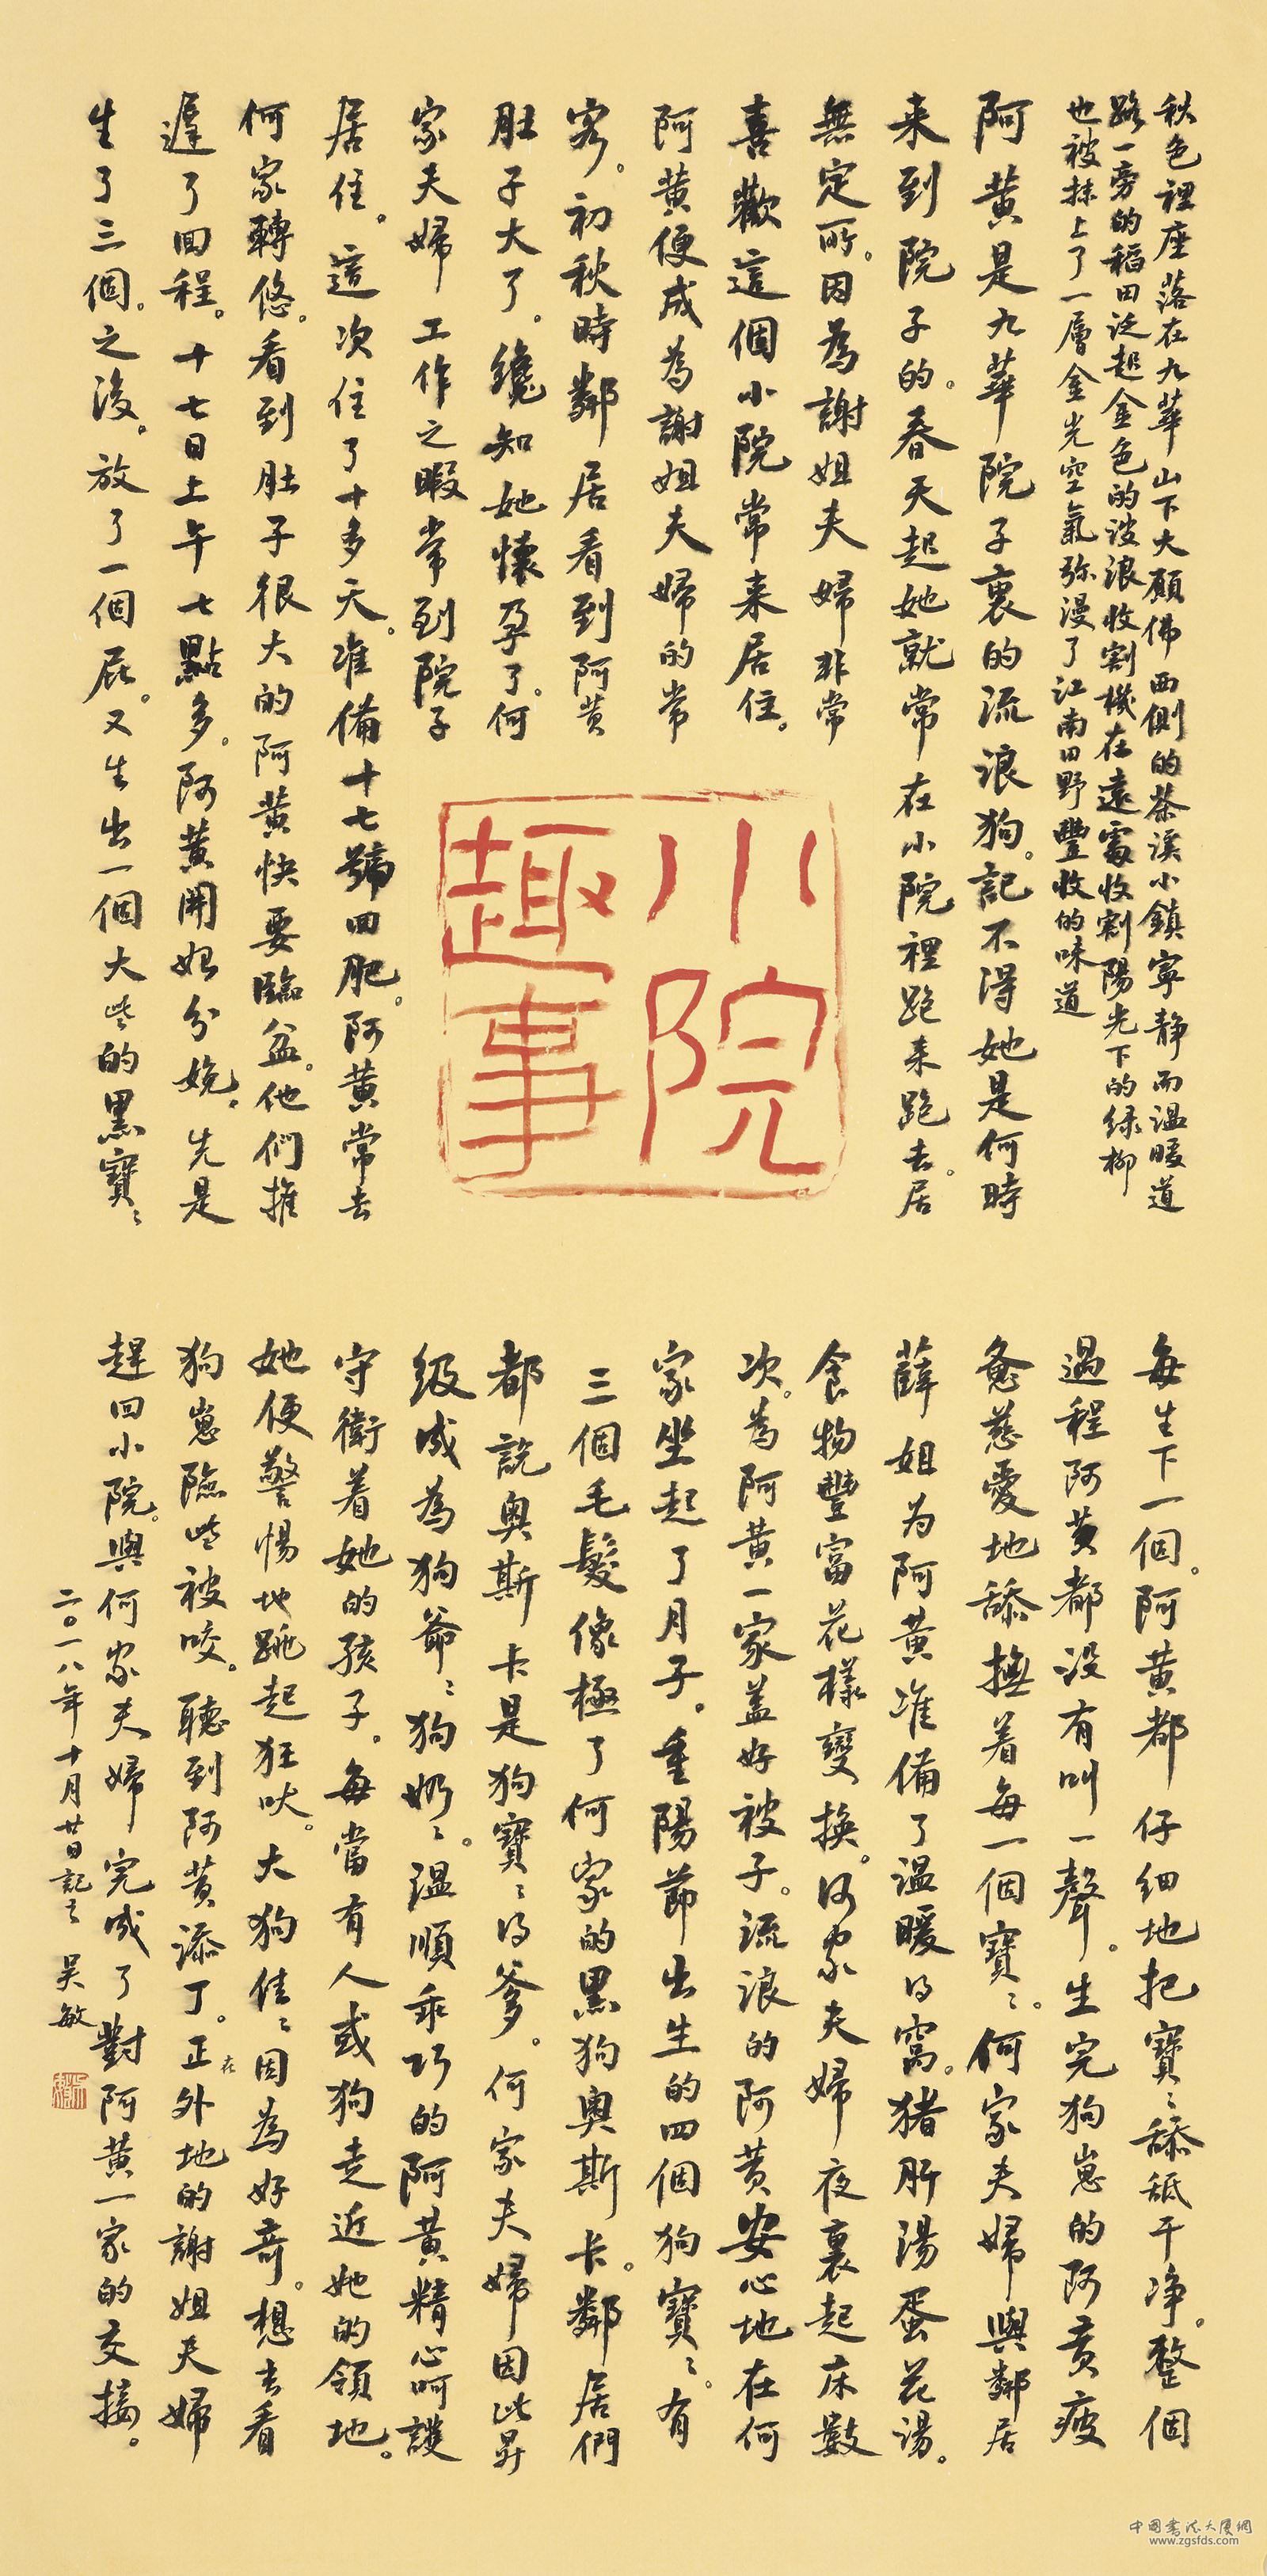 秋色裡座落在九華山下大願佛西側的茶溪小鎮寧静而温暖道
路一旁的稻田泛起金色的波浪收割機在遠處收割陽光下的绿柳
也被抹上了一層金光空氣弥漫了江南田野豐收的味道
阿黄是九華院子裏的流浪狗。記不得她是何時
来到院子的。春天起她就常在小院裡跑来跑去。居
無定所。因為謝姐夫婦非常
喜歡這個小院常来居住。
阿黄便成為謝姐夫婦的常
客。初秋時鄰居看到阿黄
肚子大了。纔知她懷孕了。何
家夫婦工作之暇常到院子
居住。這次住了十多天。准備十七號回肥。阿黄常去
何家轉悠。看到肚子很大的阿黄快要臨盆。他們推
遲了回程。十七日上午七點多。阿黄開始分娩。先是
生了三個。之後。放了一個屁。又生出一個大些的黑寶〻
小院
趣事
每生下一個。阿黄都仔細地把寶〻舔舐干净。整個
過程阿黄都没有叫一聲。生完狗崽的阿黄疲
惫慈愛地舔撫着每一個寶〻。何家夫婦與鄰居
薛姐为阿黄准備了温暖的窩。猪肝湯蛋花湯。
食物豐富花樣變換。何家夫婦夜裏起床數
次。為阿黄一家蓋好被子。流浪的阿黄安心地在何
家坐起了月子。重陽節出生的四個狗寶〻。有
三個毛髮像極了何家的黑狗奥斯卡。鄰居們
都説奥斯卡是狗寶〻的爹。何家夫婦因此昇
级成為狗爺〻狗奶〻。温順乖巧的阿黄精心呵護
守衛着她的孩子。每當有人或狗走近她的領地。
她便警惕地跳起狂吠。大狗佳〻因為好奇。想去看
狗崽險些被咬。聽到阿黄添丁。正在外地的謝姐夫婦
趕回小院。與何家夫婦完成了對阿黄一家的交接。
二〇一八年十月廿日記之 吴敏
中国書法大厦網
www.zgsfds.com